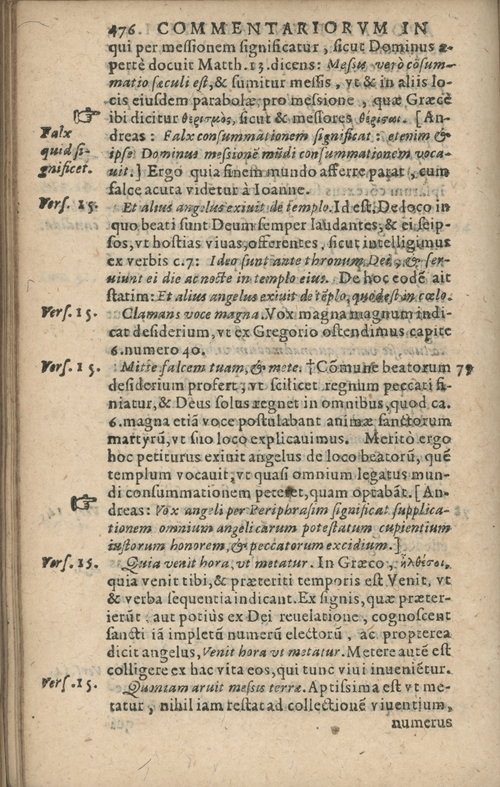 476. COMMENTARIORVM IN
qui per messionem significatur, sicut Dominus a-
pertè docuit Matth.13.dicens: Messis verò cōsum-
matio sæculi est, & sumitur messis, vt & in aliis lo-
cis eiusdem parabolæ, pro messione, quæ Græcè
ibi dicitur θερισμὸς, sicut & messores θερισταὶ. [An-
Falx
dreas: Falx consummationem significat: etenim &
quid si-
ipse Dominus messionē mūdi consummationem voca-
gnificet.
uit.] Ergo quia finem mundo afferre parat, cum
falce acuta videtur à Ioanne.
Vers. 15.
Et alius angelus exiuit de templo. Id est, De loco in
quo beati sunt Deum semper laudantes, & ei seip-
sos, vt hostias viuas, offerentes, sicut intelligimus
ex verbis c.7: Ideo sunt ante thronum Dei, & ser-
uiunt ei die ac nocte in templo eius. De hoc eodē ait
statim: Et alius angelus exiuit de tēplo, quod est in cœlo.
Vers. 15.
Clamans voce magna. Vox magna magnum indi-
cat desiderium, vt ex Gregorio ostendimus capite
6. numero 40.
Vers. 15.
Mitte falcem tuam, & mete. † Cōmune beatorum 79
desiderium profert, vt scilicet regnum peccari fi-
niatur, & Deus solus regnet in omnibus, quod ca.
6. magna etiā voce postulabant animæ sanctorum
martyrū, vt suo loco explicauimus. Meritò ergo
hoc petiturus exiuit angelus de loco beatorū, quē
templum vocauit, vt quasi omnium legatus mun-
di consummationem peteret, quam optabāt. [An-
dreas: Vox angeli per Periphrasim significat supplica-
tionem omnium angelicarum potestatum cupientium
iustorum honorem, & peccatorum excidium.]
Vers. 15.
Quia venit hora, vt metatur. In Græco,
quia venit tibi, & præteriti temporis est Venit, vt
& verba sequentia indicant. Ex signis, quæ præter-
ierūt: aut potiùs ex Dei reuelatione, cognoscent
sancti iā impletū numerū electorū, ac propterea
dicit angelus, Venit hora vt metatur. Metere autē est
colligere ex hac vita eos, qui tunc viui inueniētur.
Vers. 15.
Quoniam aruit messis terræ. Aptissima est vt me-
tatur, nihil iam restat ad collectionē viuentium,
numerus